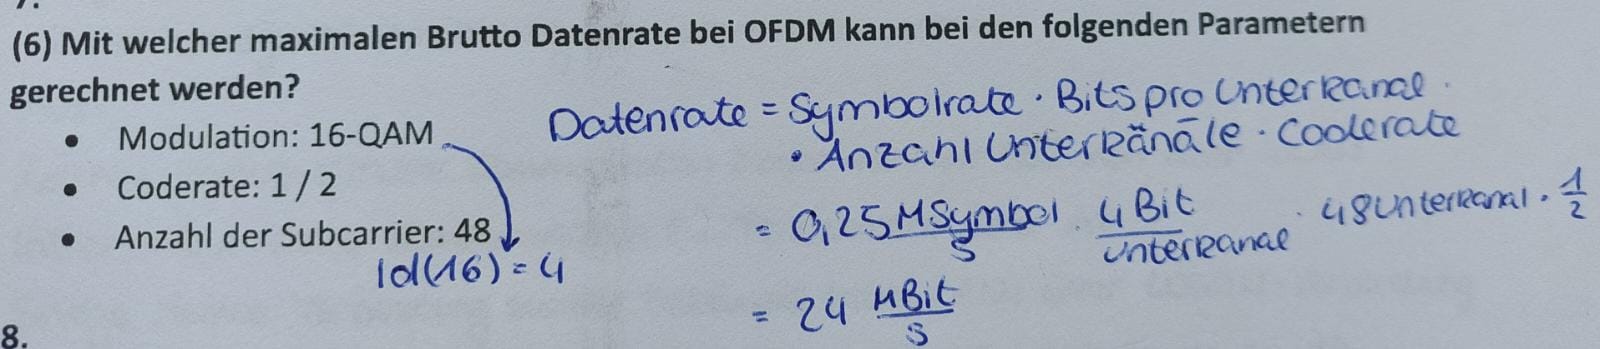 7.
(6) Mit welcher maximalen Brutto Datenrate bei OFDM kann bei den folgenden Parametern
gerechnet werden?
• Modulation: 16-QAM
• Coderate: 1 / 2
• Anzahl der Subcarrier: 48
ld(16) = 4
Datenrate = Symbolrate · Bits pro Unterkanal ·
· Anzahl Unterkänäle · Coderate
= 0,25 MSymbol/s · 4 Bit/Unterkanal · 48 Unterkanal · 1/2
= 24 MBit/s
8.